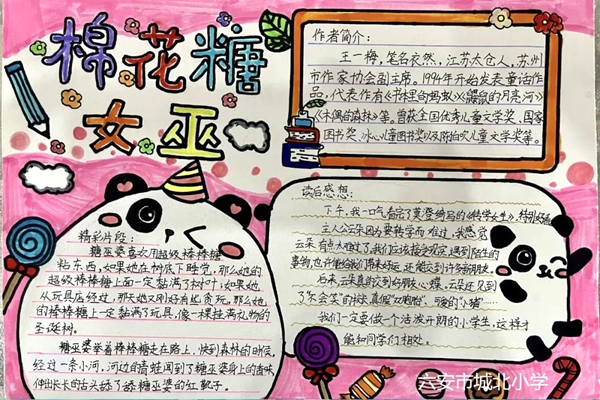 棉花糖
女巫
作者简介:
王一梅,笔名衣然,江苏太仓人,苏州
市作家协会副主席。1994年开始发表童话作
品,代表作有《书本里的蚂蚁》《鼹鼠的月亮河》
《木偶的森林》等。曾获全国优秀儿童文学奖、国家
图书奖、冰心儿童图书奖以及陈伯吹儿童文学奖等。
精彩片段:
糖巫婆喜欢用超级棒棒糖
粘东西,如果她在树底下睡觉,那么她的
超级棒棒糖上面一定黏满了树叶;如果她
从玩具店经过,那天她又刚好有些贪玩,那么她
的棒棒糖上一定黏满了玩具,像一棵挂满礼物的
圣诞树。
糖巫婆举着棒棒糖走在路上,快到森林的时候,
经过一条小河,河边的青蛙闻到了糖巫婆身上的香味,
伸出长长的舌头舔了舔糖巫婆的红靴子。
读后感想:
下午,我一口气看完了黄澄绮写的《转学女生》,特别好看
主人公云朵因为要转学而难过,我感觉
云朵有点太难过了,我们应该接受现实,遇到陌生的
事物,也许能给我们带来好运,还能交到许多新朋友。
后来,云朵真的交到了好朋友心蝶,云朵还见到
了不会笑的
我们一定要做个活泼开朗的小学生,这样才
能和同学们相处。
六安市城北小学